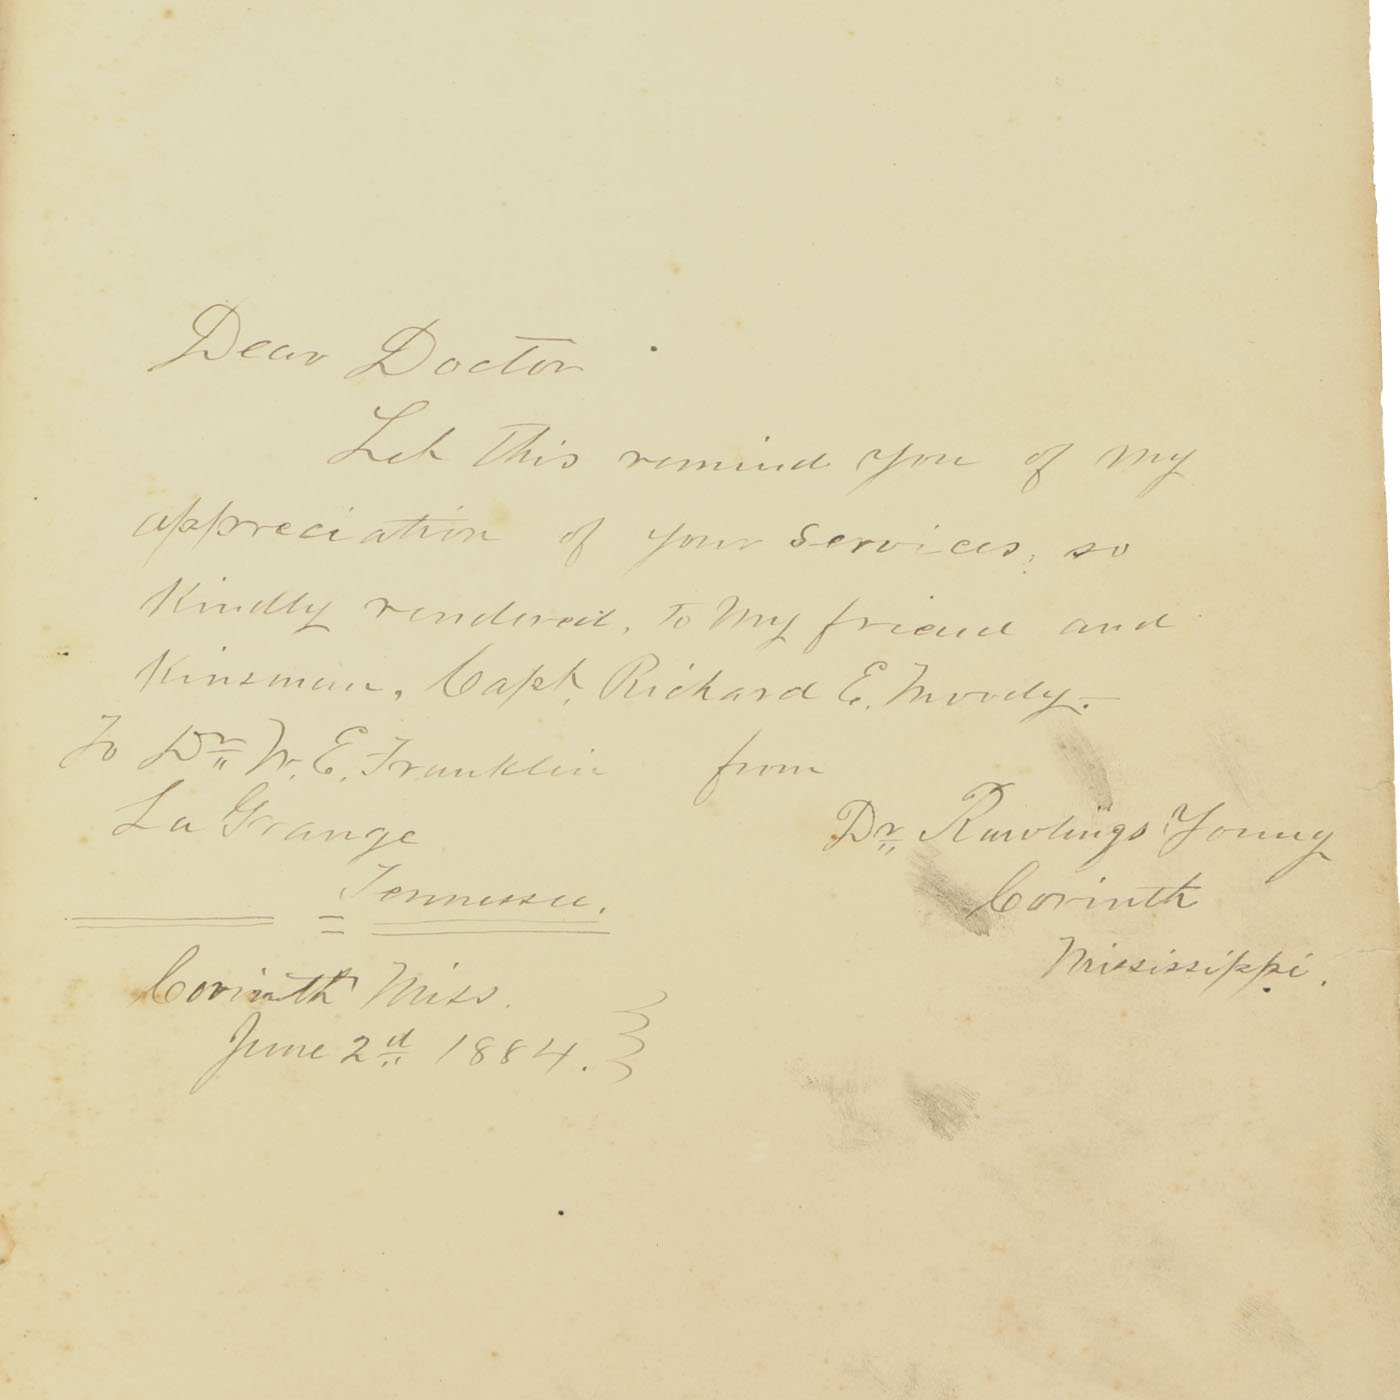 Dear Doctor
Let this remind you of my
appreciation of your services, so
Kindly rendered, to my friend and
Kinsman, Capt. Richard E. Moody.—
To Dr. W. E. Franklin from
La Grange
Dr. Rawlings Young
Tennessee.
Corinth
Mississippi.
Corinth Miss.
June 2d 1884.